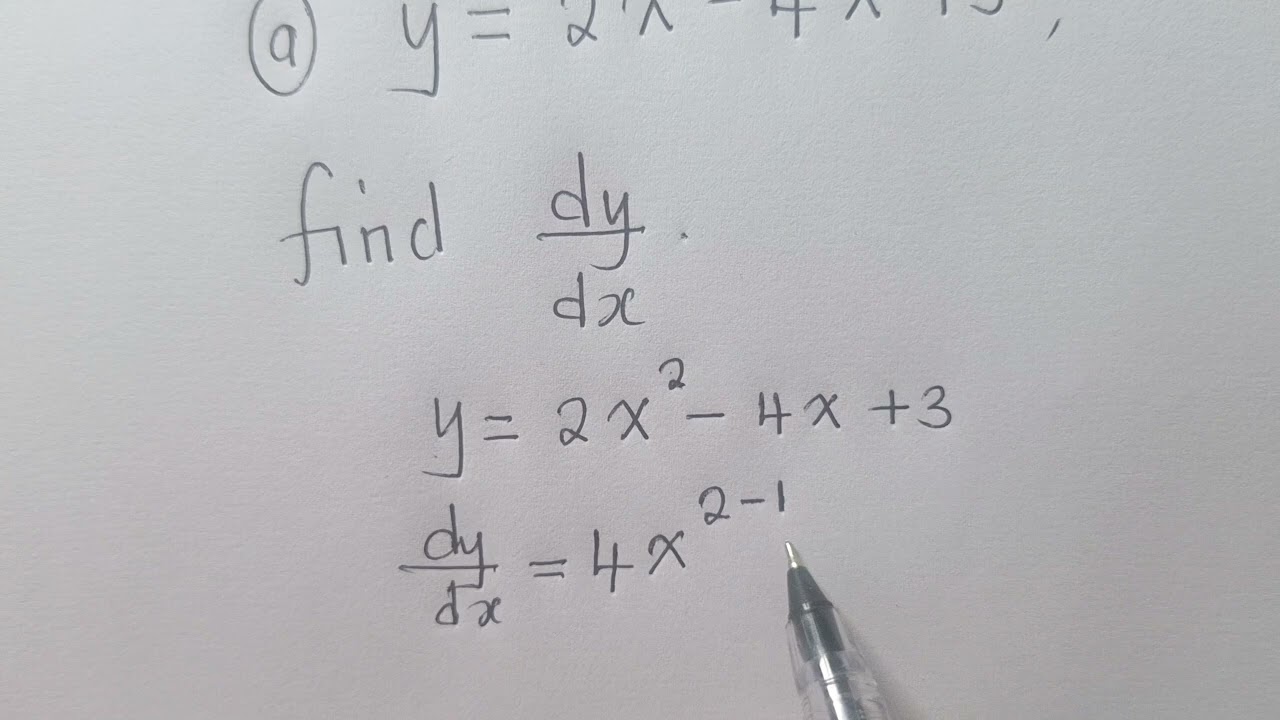 ⓐ y = 2x - 4x + 3,
find dy/dx.
y = 2x² - 4x + 3
dy/dx = 4x²⁻¹